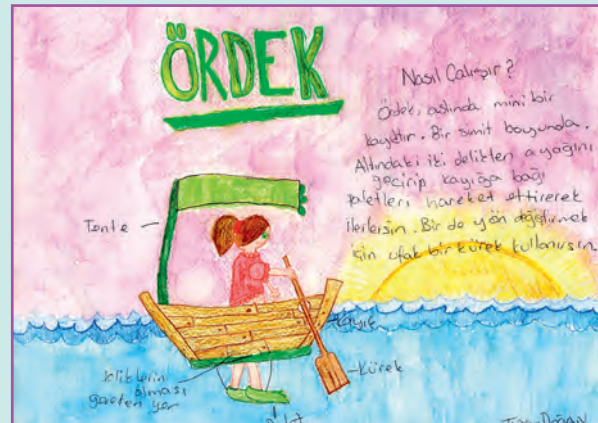 ÖRDEK
Nasıl Çalışır?
Ördek, aslında mini bir
kayıktır. Bir simit boyunda.
Altındaki iki delikten ayağını
geçirip kayığa bağlı
paletleri hareket ettirerek
ilerlersin. Bir de yön değiştirmek
için ufak bir kürek kullanırsın.
Tente
Kayık
Kürek
deliklerin
olması
gereken yer
DOĞAN